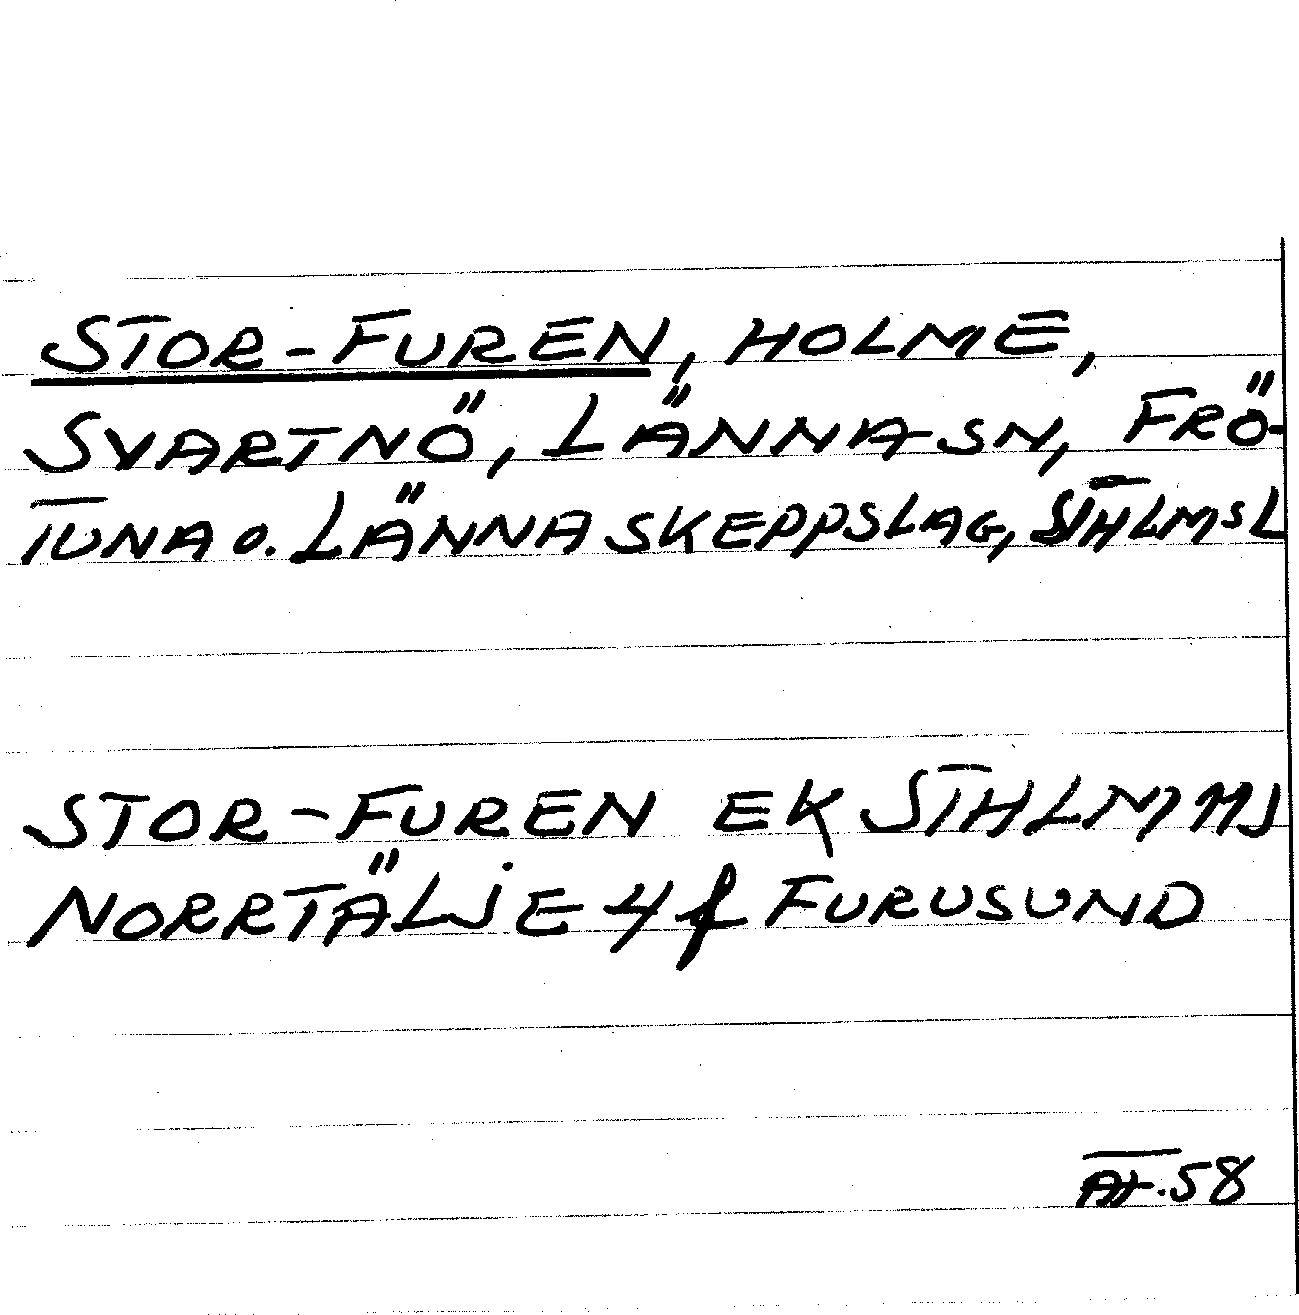 STOR-FUREN, HOLME,
SVARTNÖ, LÄNNA SN, FRÖ-
TUNA O. LÄNNA SKEPPSLAG, STHLMS L
STOR-FUREN EK STHLM MJ
NORRTÄLJE 4 f FURUSUND
58